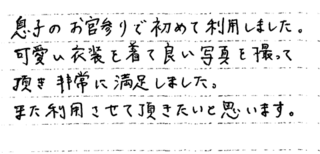 息子のお宮参りで初めて利用しました。
可愛い衣装を着て良い写真を撮って
頂き非常に満足しました。
また利用させて頂きたいと思います。